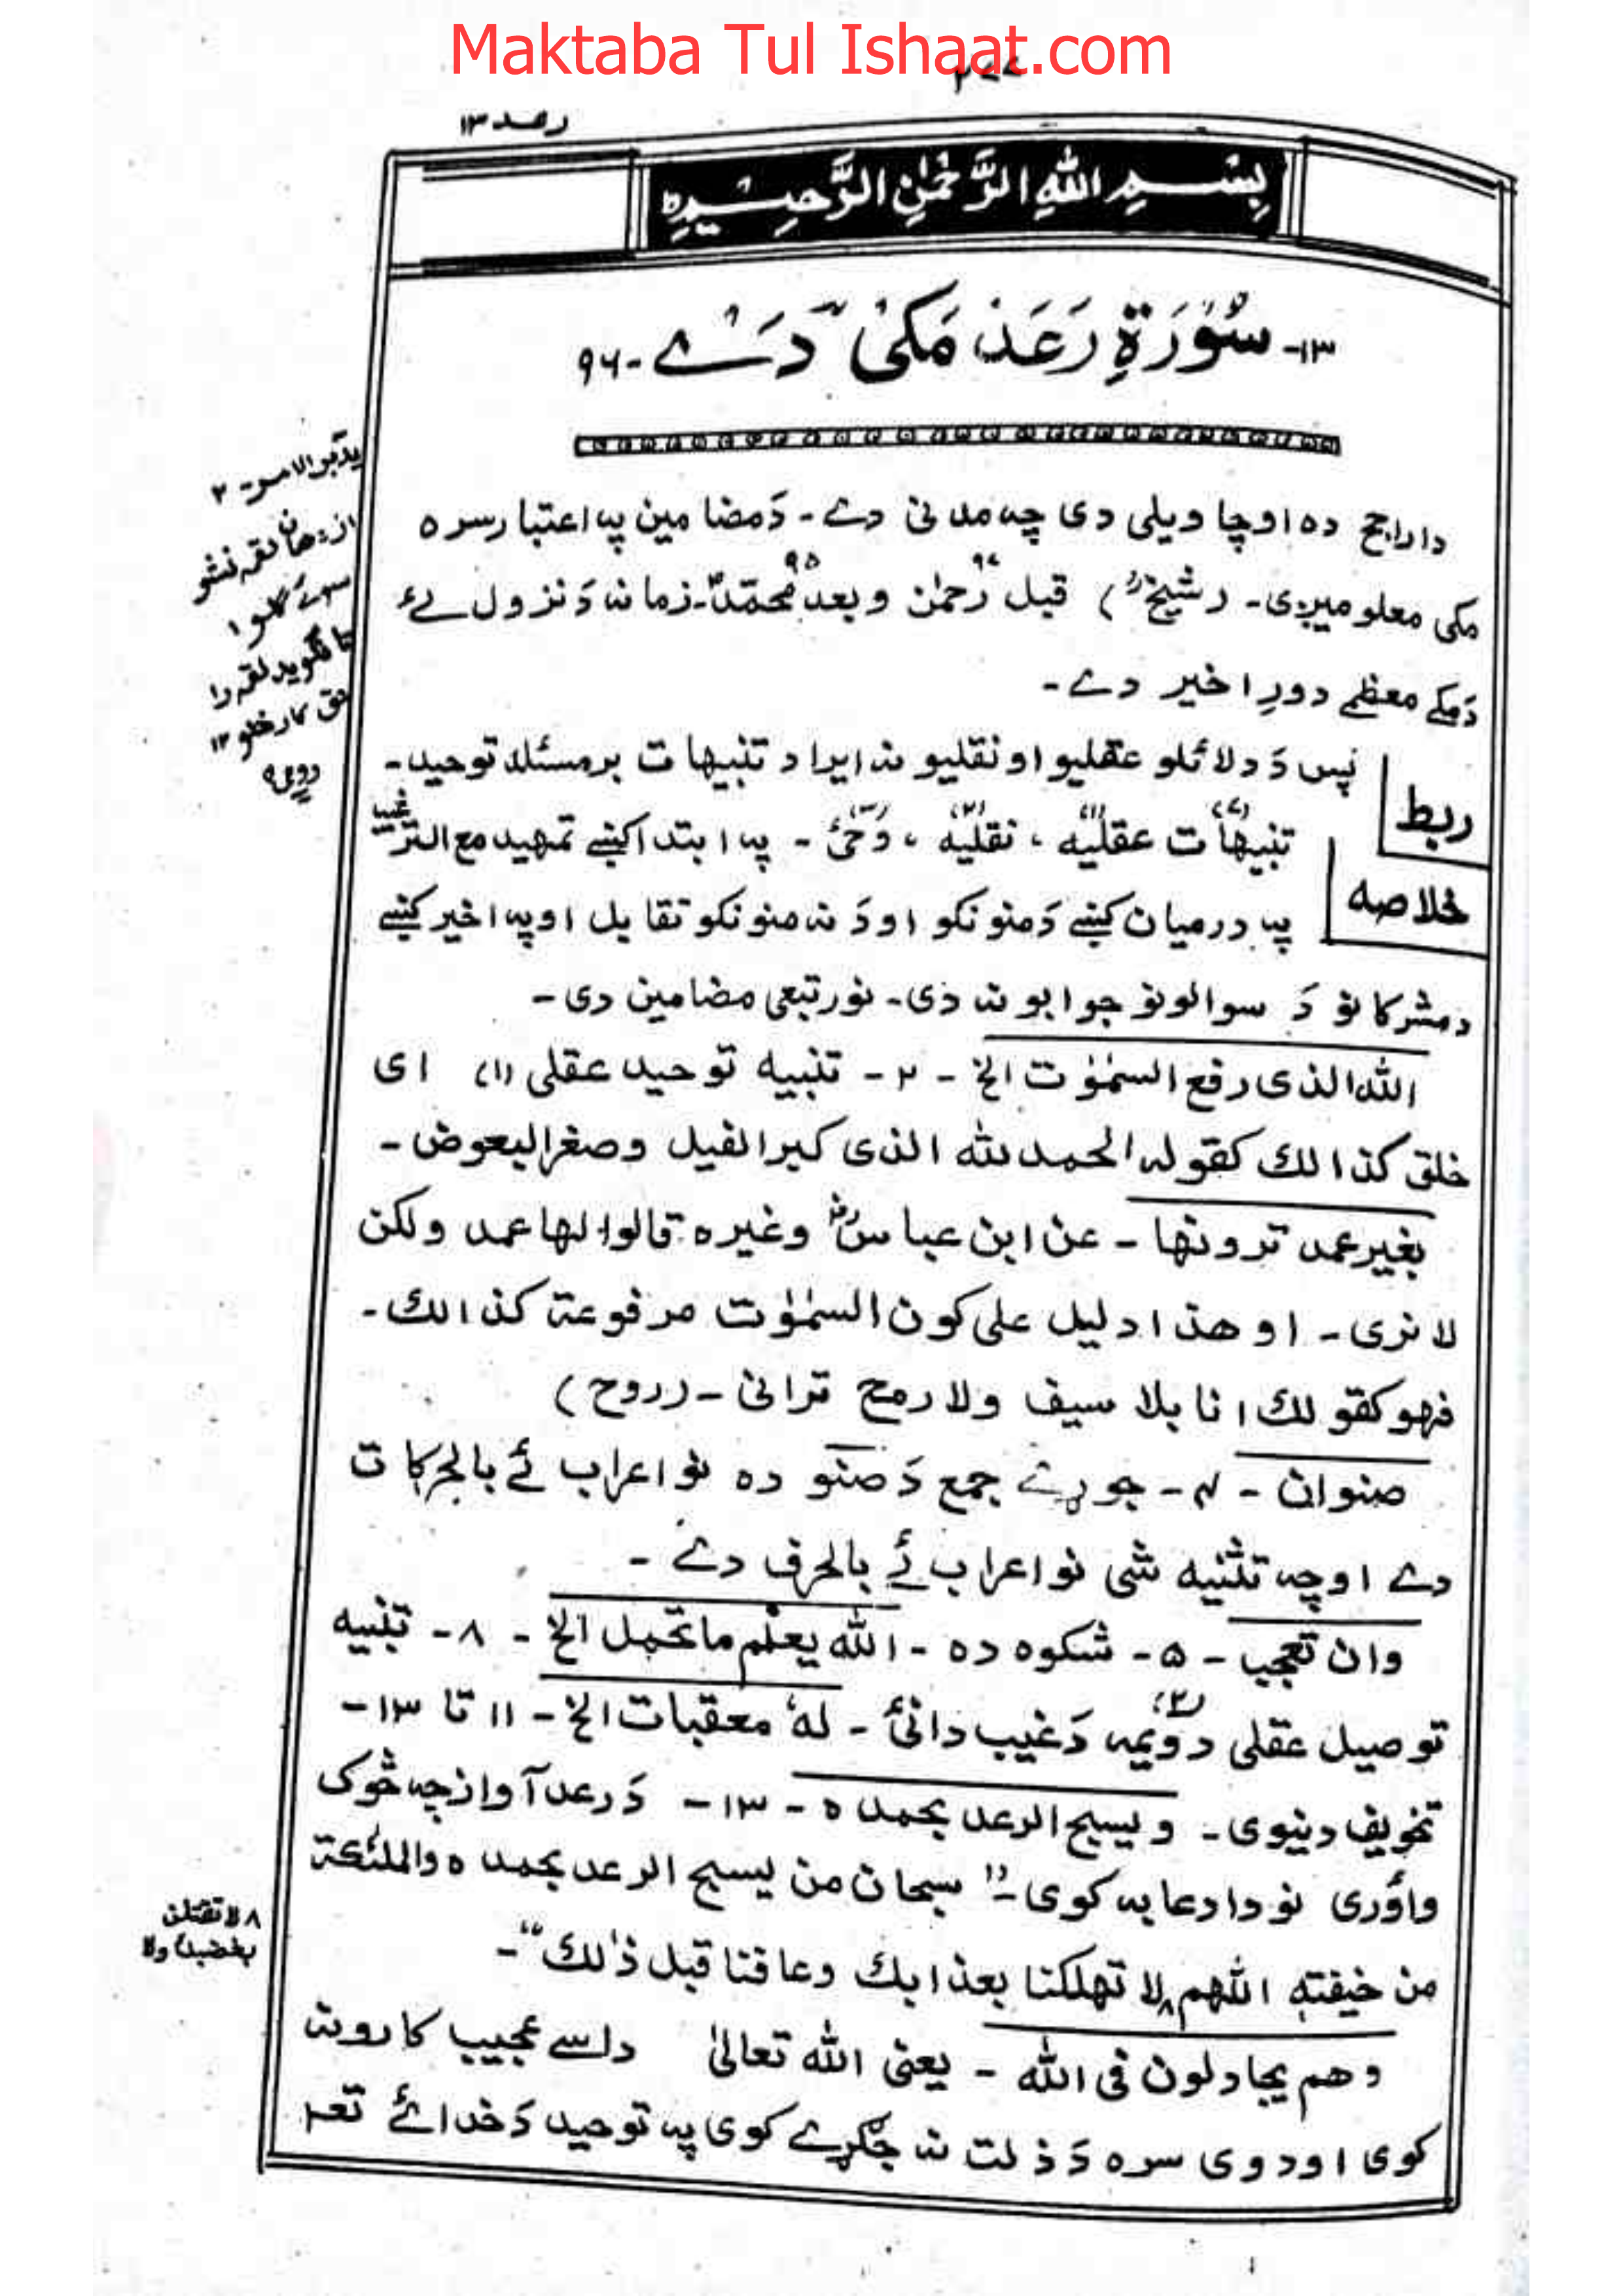 Maktaba Tul Ishaat.com
۲۷۷
رعد ۱۳
بِسْمِ اللهِ الرَّحْمٰنِ الرَّحِيْمِ ہ
۱۳- سُوْرَةِ رَعَدْ مَکیْ دَےْ - ۹۶
دا راجح ده او چا ویلی دی چہ مدنی دے - دَ مضامین پہ اعتبار سره
مکی معلومیږی - (شیخؒ) قبل رحمٰن ۹۷ و بعد محمّدؐ ۹۵ - زمانہ دَ نزول ئے
دَ مکے معظمے دورِ اخیر دے -
ربط
پس دَ دلائلو عقلیو او نقلیو نہ ایراد تنبیهات بر مسئلہ توحید -
خلاصه
تنبیهات (۷) عقلیّه (۱) ، نقلیّه (۲) ، وَحیْ (۳) - پہ ابتدا کښے تمهید مع الترغیب
پہ درمیان کښے دَ منونکو او دَ نہ منونکو تقابل او پہ اخیر کښے
د مشرکانو دَ سوالونو جوابونہ دی - نور تبعی مضامین دی -
الله الذی رفع السمٰوٰت الخ - ۲ - تنبیه توحید عقلی (۱) ای
خلق کذالك کقولہ الحمد للّٰه الذی کبر الفیل وصغر البعوض -
بغیر عمد ترونها - عن ابن عباسؓ وغیره قالوا لها عمد ولکن
لا نری - او هذا دلیل علی کون السمٰوٰت مرفوعة کذالك -
فهو کقولك انا بلا سیف ولا رمح ترانی - (روح)
صنوان - ۴ - جوړے جمع دَ صنو ده نو اعراب ئے بالحرکات
دے او چہ تثنیه شی نو اعراب ئے بالحرف دے -
وان تعجب - ۵ - شکوه ده - اللّٰه یعلم ما تحمل الخ - ۸ - تنبیه
توصیل عقلی دویمہ (۲) دَ غیب دانیٔ - لهٗ معقبات الخ - ۱۱ تا ۱۳ -
تخویف دنیوی - ویسبح الرعد بحمده - ۱۳ - دَ رعد آواز چہ څوک
واؤری نو دا دعا بہ کوی - " سبحان من یسبح الرعد بحمده والملئکة
من خیفتہ اللّٰهم ۸ لا تهلکنا بعذابك وعافنا قبل ذٰلك " -
وهم یجادلون فی اللّٰه - یعنی اللّٰه تعالیٰ داسے عجیب کارونہ
کوی او دوی سره دَ ذلت نہ جگړے کوی پہ توحید دَ خدائے تعہ
یدبر الامر - ۲
لقمہ را
۸ لا تقتلن
بغضبك ولا